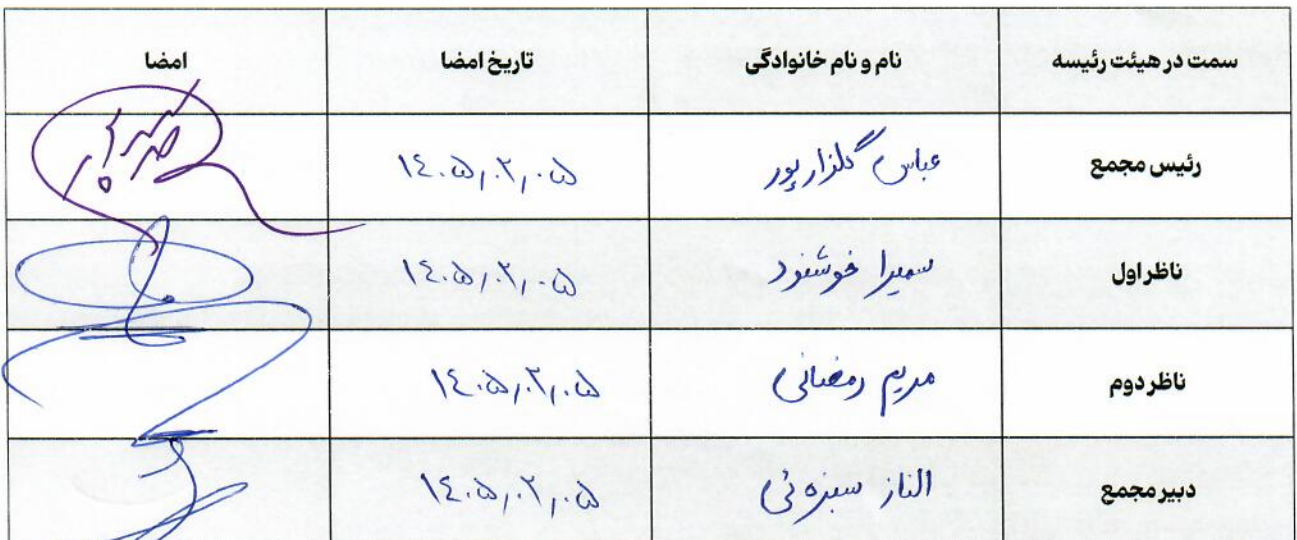 سمت در هیئت رئیسه نام و نام خانوادگی تاریخ امضا امضا
رئیس مجمع عباس گلزارپور ۱۴۰۵/۰۲/۰۵
ناظر اول سمیرا خوشنود ۱۴۰۵/۰۲/۰۵
ناظر دوم مریم رمضانی ۱۴۰۵/۰۲/۰۵
دبیر مجمع الناز سبزه ئی ۱۴۰۵/۰۲/۰۵